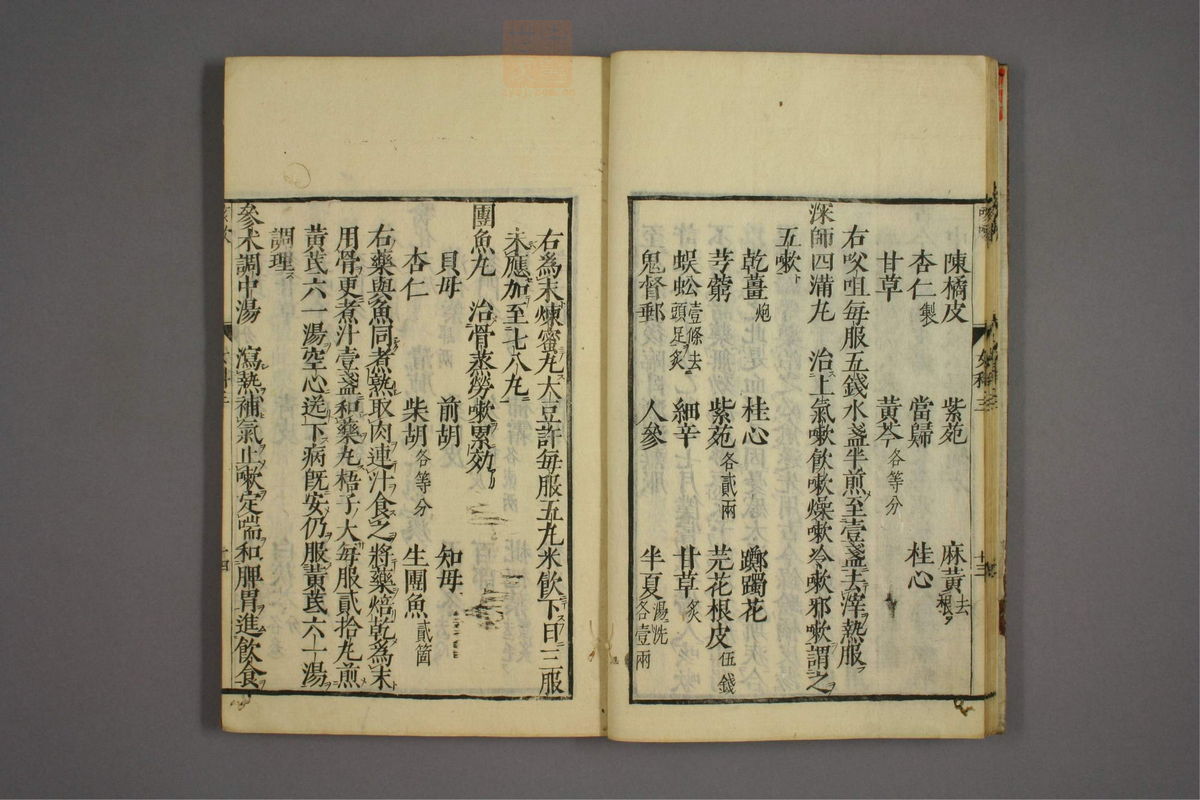 陳橘皮　紫苑　麻黃去根
杏仁製　當歸　桂心
甘草　黃芩各等分
右㕮咀每服五錢水盞半煎至壹盞去滓熱服
深師四滿丸　治上氣嗽飲嗽燥嗽冷嗽邪嗽謂之
五嗽
乾薑炮　桂心　躑躅花
芎藭　紫苑各貳兩　芫花根皮伍錢
蜈蚣壹條去頭足炙　細辛　甘草炙
鬼督郵　人參　半夏湯洗各壹兩
右為末煉蜜丸大豆許每服五丸米飲下日三服
未應加至七八丸
團魚丸　治骨蒸勞嗽累効
貝母　前胡　知母
杏仁　柴胡各等分　生團魚貳箇
右藥與魚同煮熟取肉連汁食之將藥焙乾為末
用骨更煮汁壹盞和藥丸梧子大每服貳拾丸煎
黃芪六一湯空心送下病旣安仍服黃芪六一湯
調理
參朮調中湯　瀉熱補氣止嗽定喘和脾胃進飲食